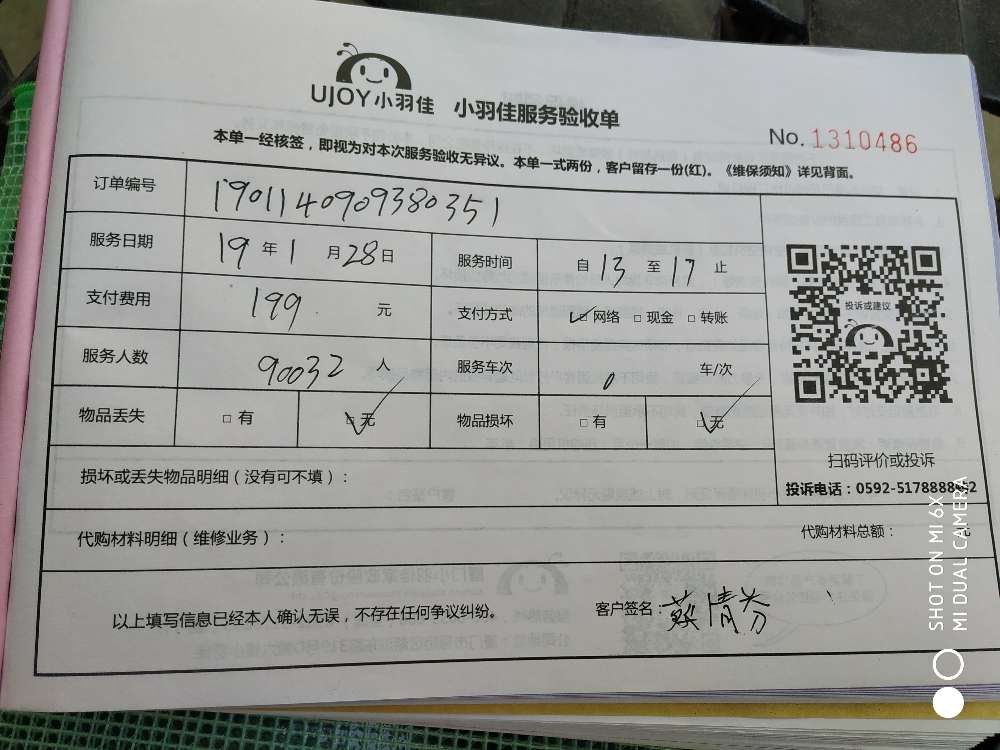 UJOY小羽佳 小羽佳服务验收单
No. 1310486
本单一经核签，即视为对本次服务验收无异议。本单一式两份，客户留存一份(红)。《维保须知》详见背面。
订单编号 1901140909380351
服务日期 19 年 1 月 28 日 服务时间 自 13 至 17 止
投诉或建议
支付费用 199 元 支付方式 网络 现金 转账
服务人数 90032 人 服务车次 0 车/次
物品丢失 有 无 物品损坏 有 无
扫码评价或投诉
损坏或丢失物品明细（没有可不填）：
投诉电话：0592-5178888
代购材料明细（维修业务）： 代购材料总额： 元
以上填写信息已经本人确认无误，不存在任何争议纠纷。 客户签名：蔡情芬
SHOT ON MI 6X
MI DUAL CAMERA